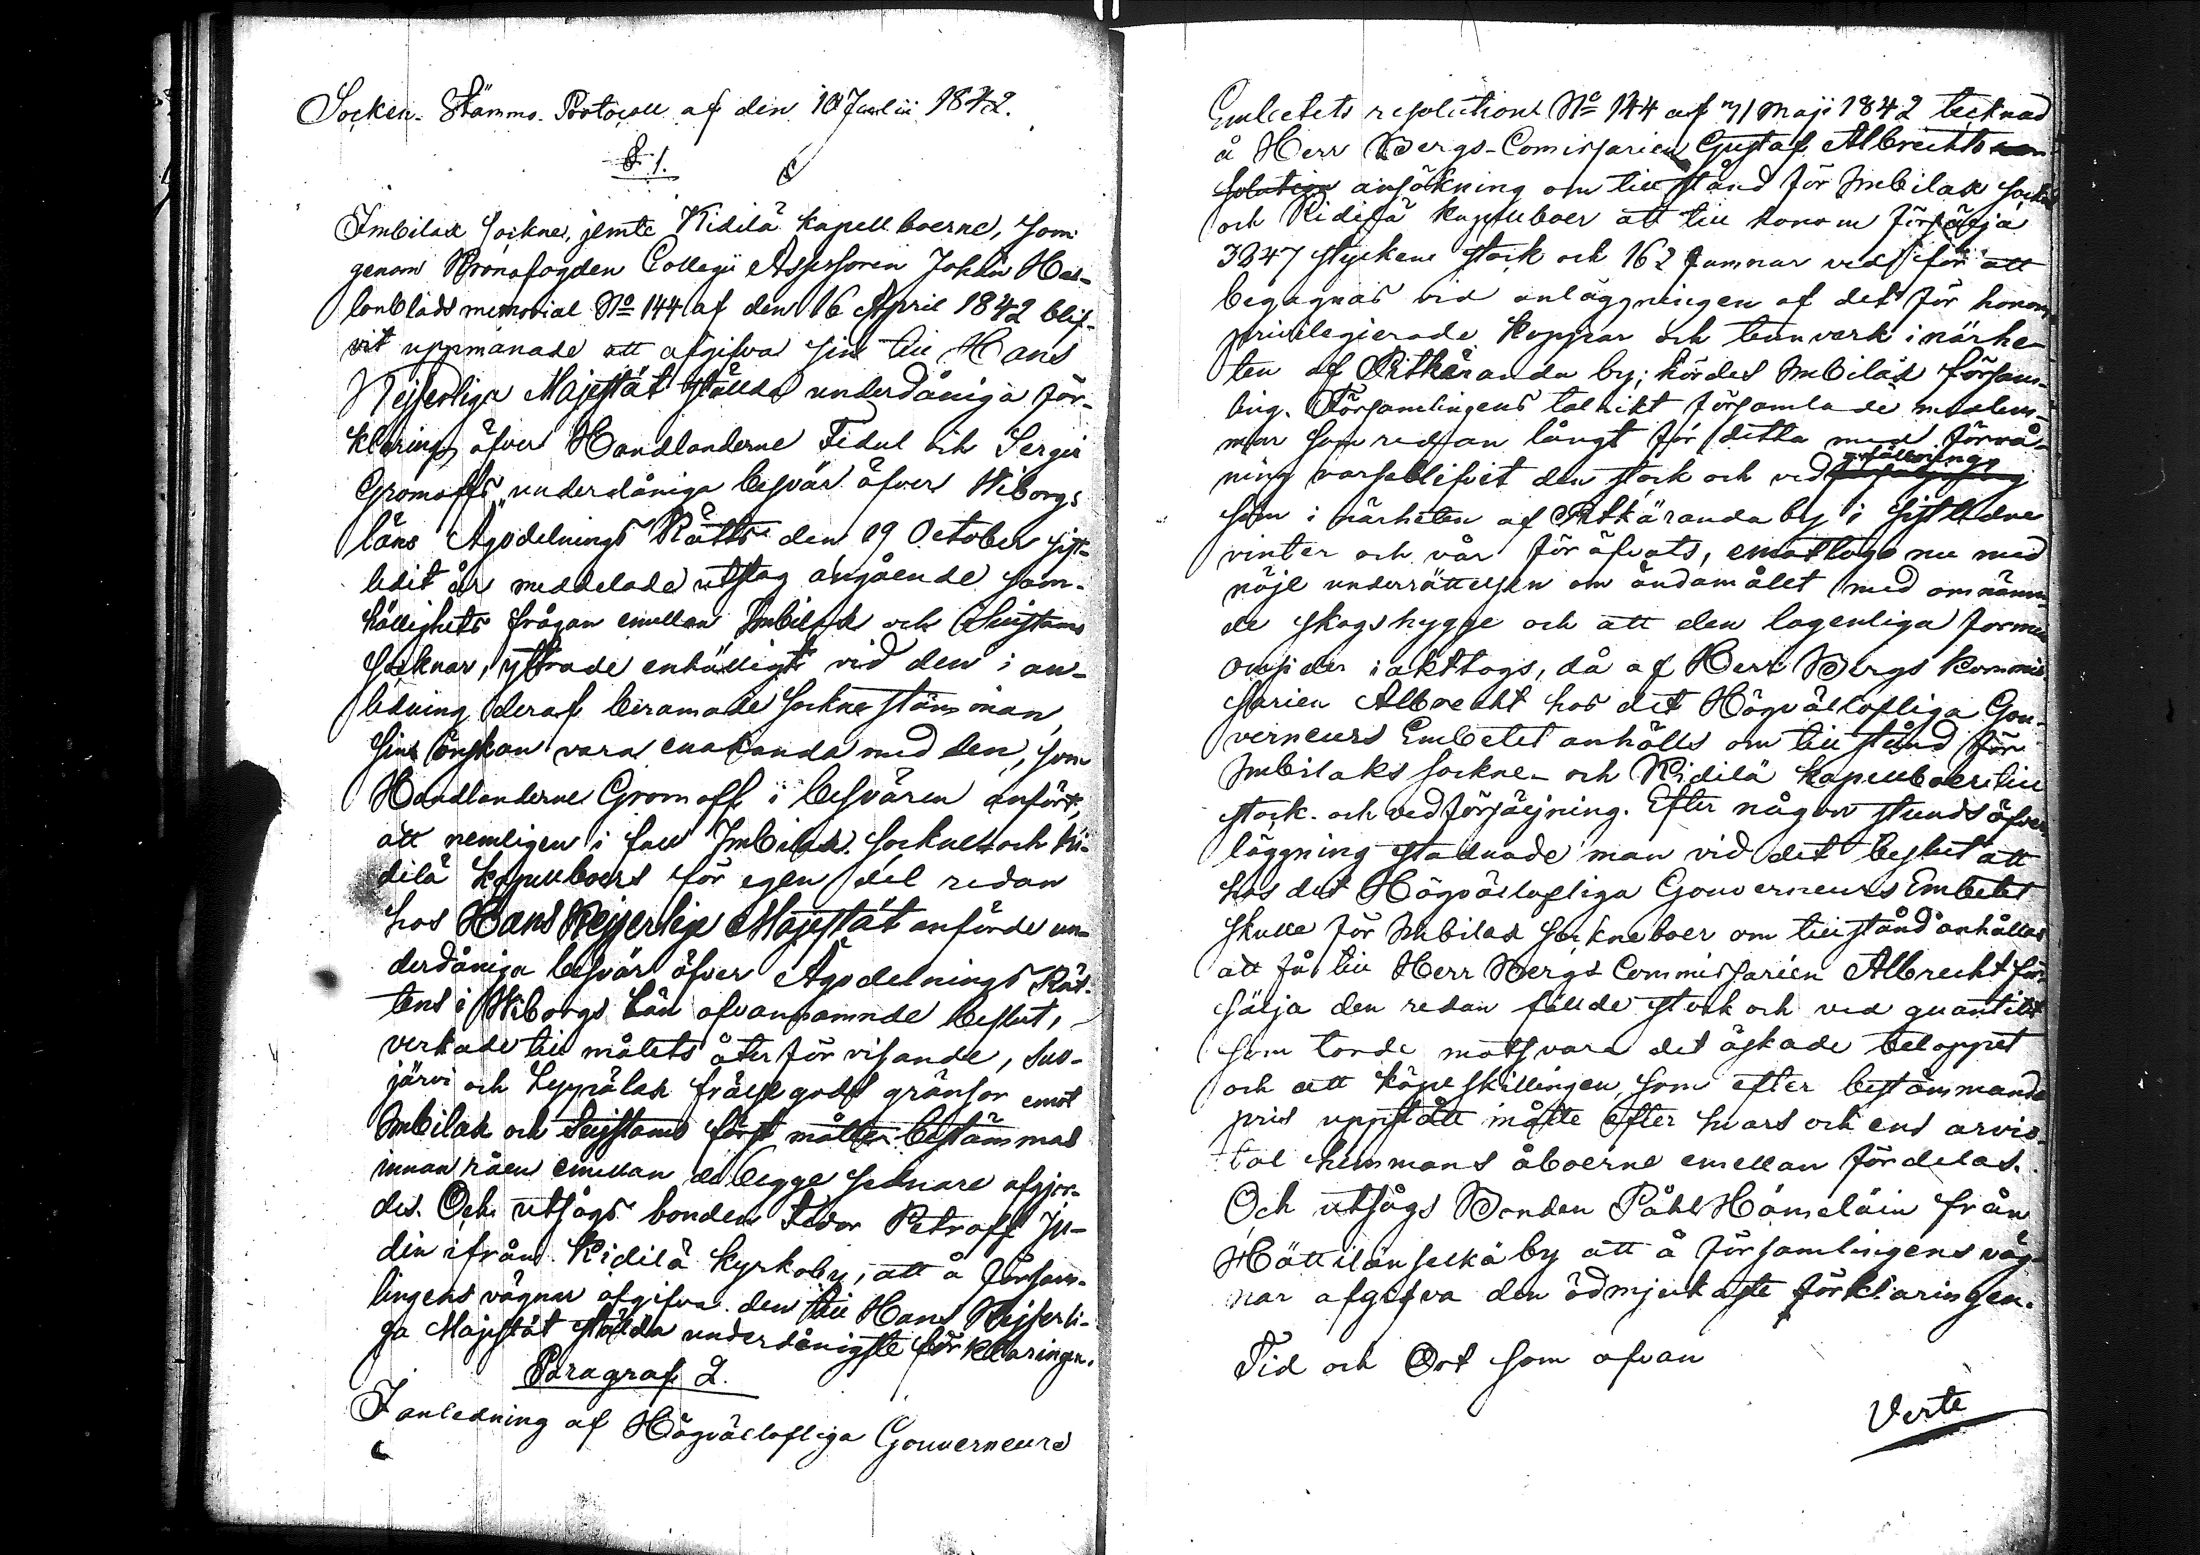 Socken-Stämmo-Protocoll af den 10 Junlii 1842.
§ 1.
Imbilax sockne, jemte Kidilä kapellboerne, som
genom Kronofogden Collegii Assessoren Johan Hal-
lonblads memorial No 144 af den 16 April 1842 blif-
vit uppmanade att afgifva sin till Hans
Kejserliga Majestät ställda underdåniga för-
klaring öfver Handlanderne Fedul och Sergei
Gromoffs underdåniga besvär öfver Wiborgs
läns Ägodelnings Rätts den 19 October sist-
ledit år meddelade utslag angående sam-
hällighets frågan emellan Imbilax och Suistamo
Socknar, yttrade enhälligt vid den i an-
ledning deraf beramade sockne stämman,
sin önskan vara enahanda med den, som
Handlanderne Gromoff i besvären anfört,
att nemligen i fall Imbilax sockne och Ki-
dilä kapellboers för egen del redan
hos Hans Kejserliga Majestät anförde un-
derdåniga besvär öfver Ägodelnings Rät-
tens i Wiborgs Län ofvannämnde beslut,
verkade till målets återförvisande, Suo-
järvi och Leppälax frälsegods gränsor emot
Imbilax och Suistamo först måtte bestämmas
innan råen emellan de begge sednare afgjor-
des. Och utsågs bonden Fedor Petroff Ju-
din ifrån Kidilä Kyrkoby, att å församm-
lingens vägnar afgifva den till Hans Kejserli-
ga Majestät ställda underdånigste förklaringen.
Paragraf 2.
I anledning af Högvällofliga Gouverneurs
Embetets resolution No 144 af 31 Maji 1842 tecknad
å Herr Bergs-Comissarien Gustaf Albrechts
solution ansökning om tillstånd för Imbilax sockne
och Kidilä kapellboer att till honom försälja
3347 stycken stock och 162 famnar ved för att
begagnas vid anläggningen af det för honom
privilegierade koppar och tennverk i närhe-
ten af Pitkäranda by; hördes Imbilax försam-
ling. Församlingens talrikt församlade medlem-
mar som redan långt för detta med förvå-
ning varseblifvit den stock och ved anfällnings
som i närheten af Pitkäranda by i sistledne
vinter och vår för öfvats, emottogo nu med
nöje underrättelsen om ändamålet med omnämn-
de skogshygge och att den lagenliga formen
omsider iakttogs, då af Herr Bergs Kommis-
sarien Albrecht hos det Högvällofliga Gou-
verneurs Embetet anhålls om tillstånd för
Imbilaks sockne- och Kidilä kapellboer till
stock- och vedförsäljning. Efter någon stunds öfver-
läggning stadnade man vid det beslut att
hos det Högvällofliga Gouverneurs Embetet
skulle för Imbilax sockneboer om tillstånd anhållas
att få till Herr Bergs Commissarien Albrecht för-
sälja den redan fällde stock och ved quantitet
som torde motsvara det äskade beloppet
och att köpeskillingen, som efter bestämmande
pris uppstått måtte efter hvars och ens arvio-
tal hemmans åboerne emellan fördelas.
Och utsågs Bonden Påhl Hämeläin från
Hättilänselkä by att å församlingens väg-
nar afgifva den ödmjukaste förklaringen.
Tid och Ort som ofvan
Verte